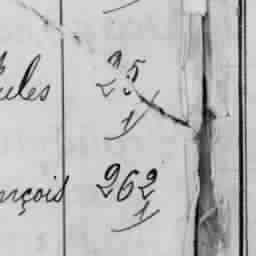 ules 25
1
nçois 262
1